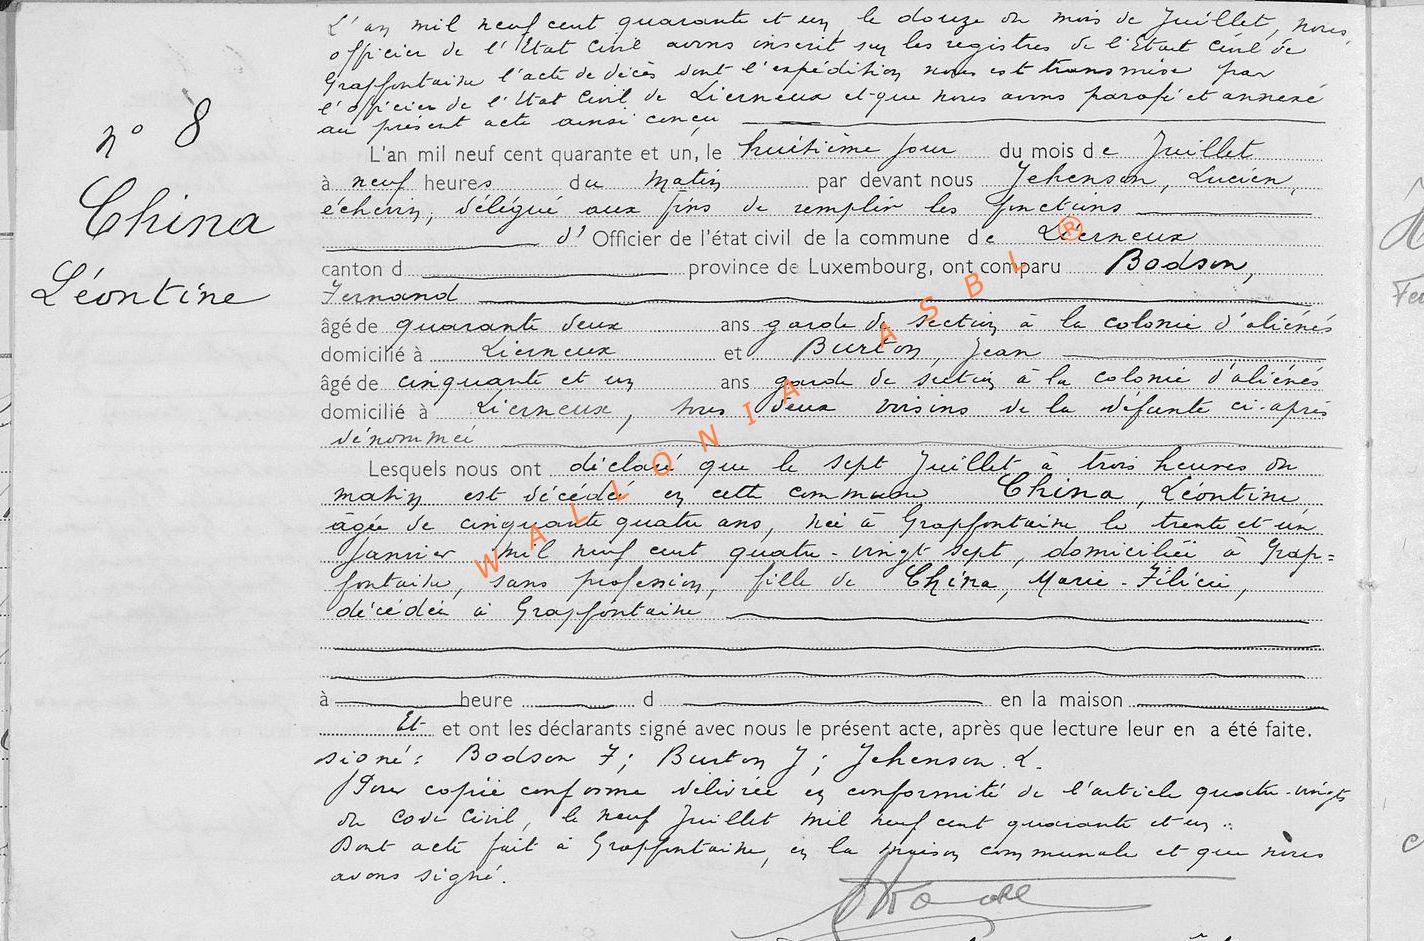 L'an mil neuf cent quarante et un, le douze du mois de Juillet, nous,
officier de l'Etat Civil avons inscrit sur les registres de l'Etat Civil de
Grapfontaine l'acte de décès dont l'expédition nous est transmise par
l'officier de l'Etat Civil de Lierneux et que nous avons parafé et annexé
au présent acte ainsi conçu
n° 8
China
Léontine
L'an mil neuf cent quarante et un, le huitième jour du mois de Juillet
à neuf heures du matin par devant nous Jehenson, Lucien,
échevin, délégué aux fins de remplir les fonctions
d' Officier de l'état civil de la commune de Lierneux
canton d province de Luxembourg, ont comparu Bodson,
Fernand
âgé de quarante deux ans garde de section à la colonie d'aliénés
domicilié à Lierneux et Burton, Jean
âgé de cinquante et un ans garde de section à la colonie d'aliénés
domicilié à Lierneux, tous deux voisins de la défunte ci-après
dénommée
Lesquels nous ont déclaré que le sept Juillet à trois heures du
matin est décédée en cette commune China, Léontine
âgée de cinquante quatre ans, née à Grapfontaine le trente et un
Janvier mil neuf cent quatre-vingt sept, domiciliée à Grap=
fontaine, sans profession, fille de China, Marie-Félicie,
décédée à Grapfontaine
à heure d en la maison
Et et ont les déclarants signé avec nous le présent acte, après que lecture leur en a été faite.
signé: Bodson F; Burton J; Jehenson. L.
Pour copie conforme délivrée en conformité de l'article quatre-vingts
du code Civil, le neuf Juillet mil neuf cent quarante et un.
Dont acte fait à Grapfontaine, en la maison communale et que nous
avons signé.
WALLONIA ASBL ®